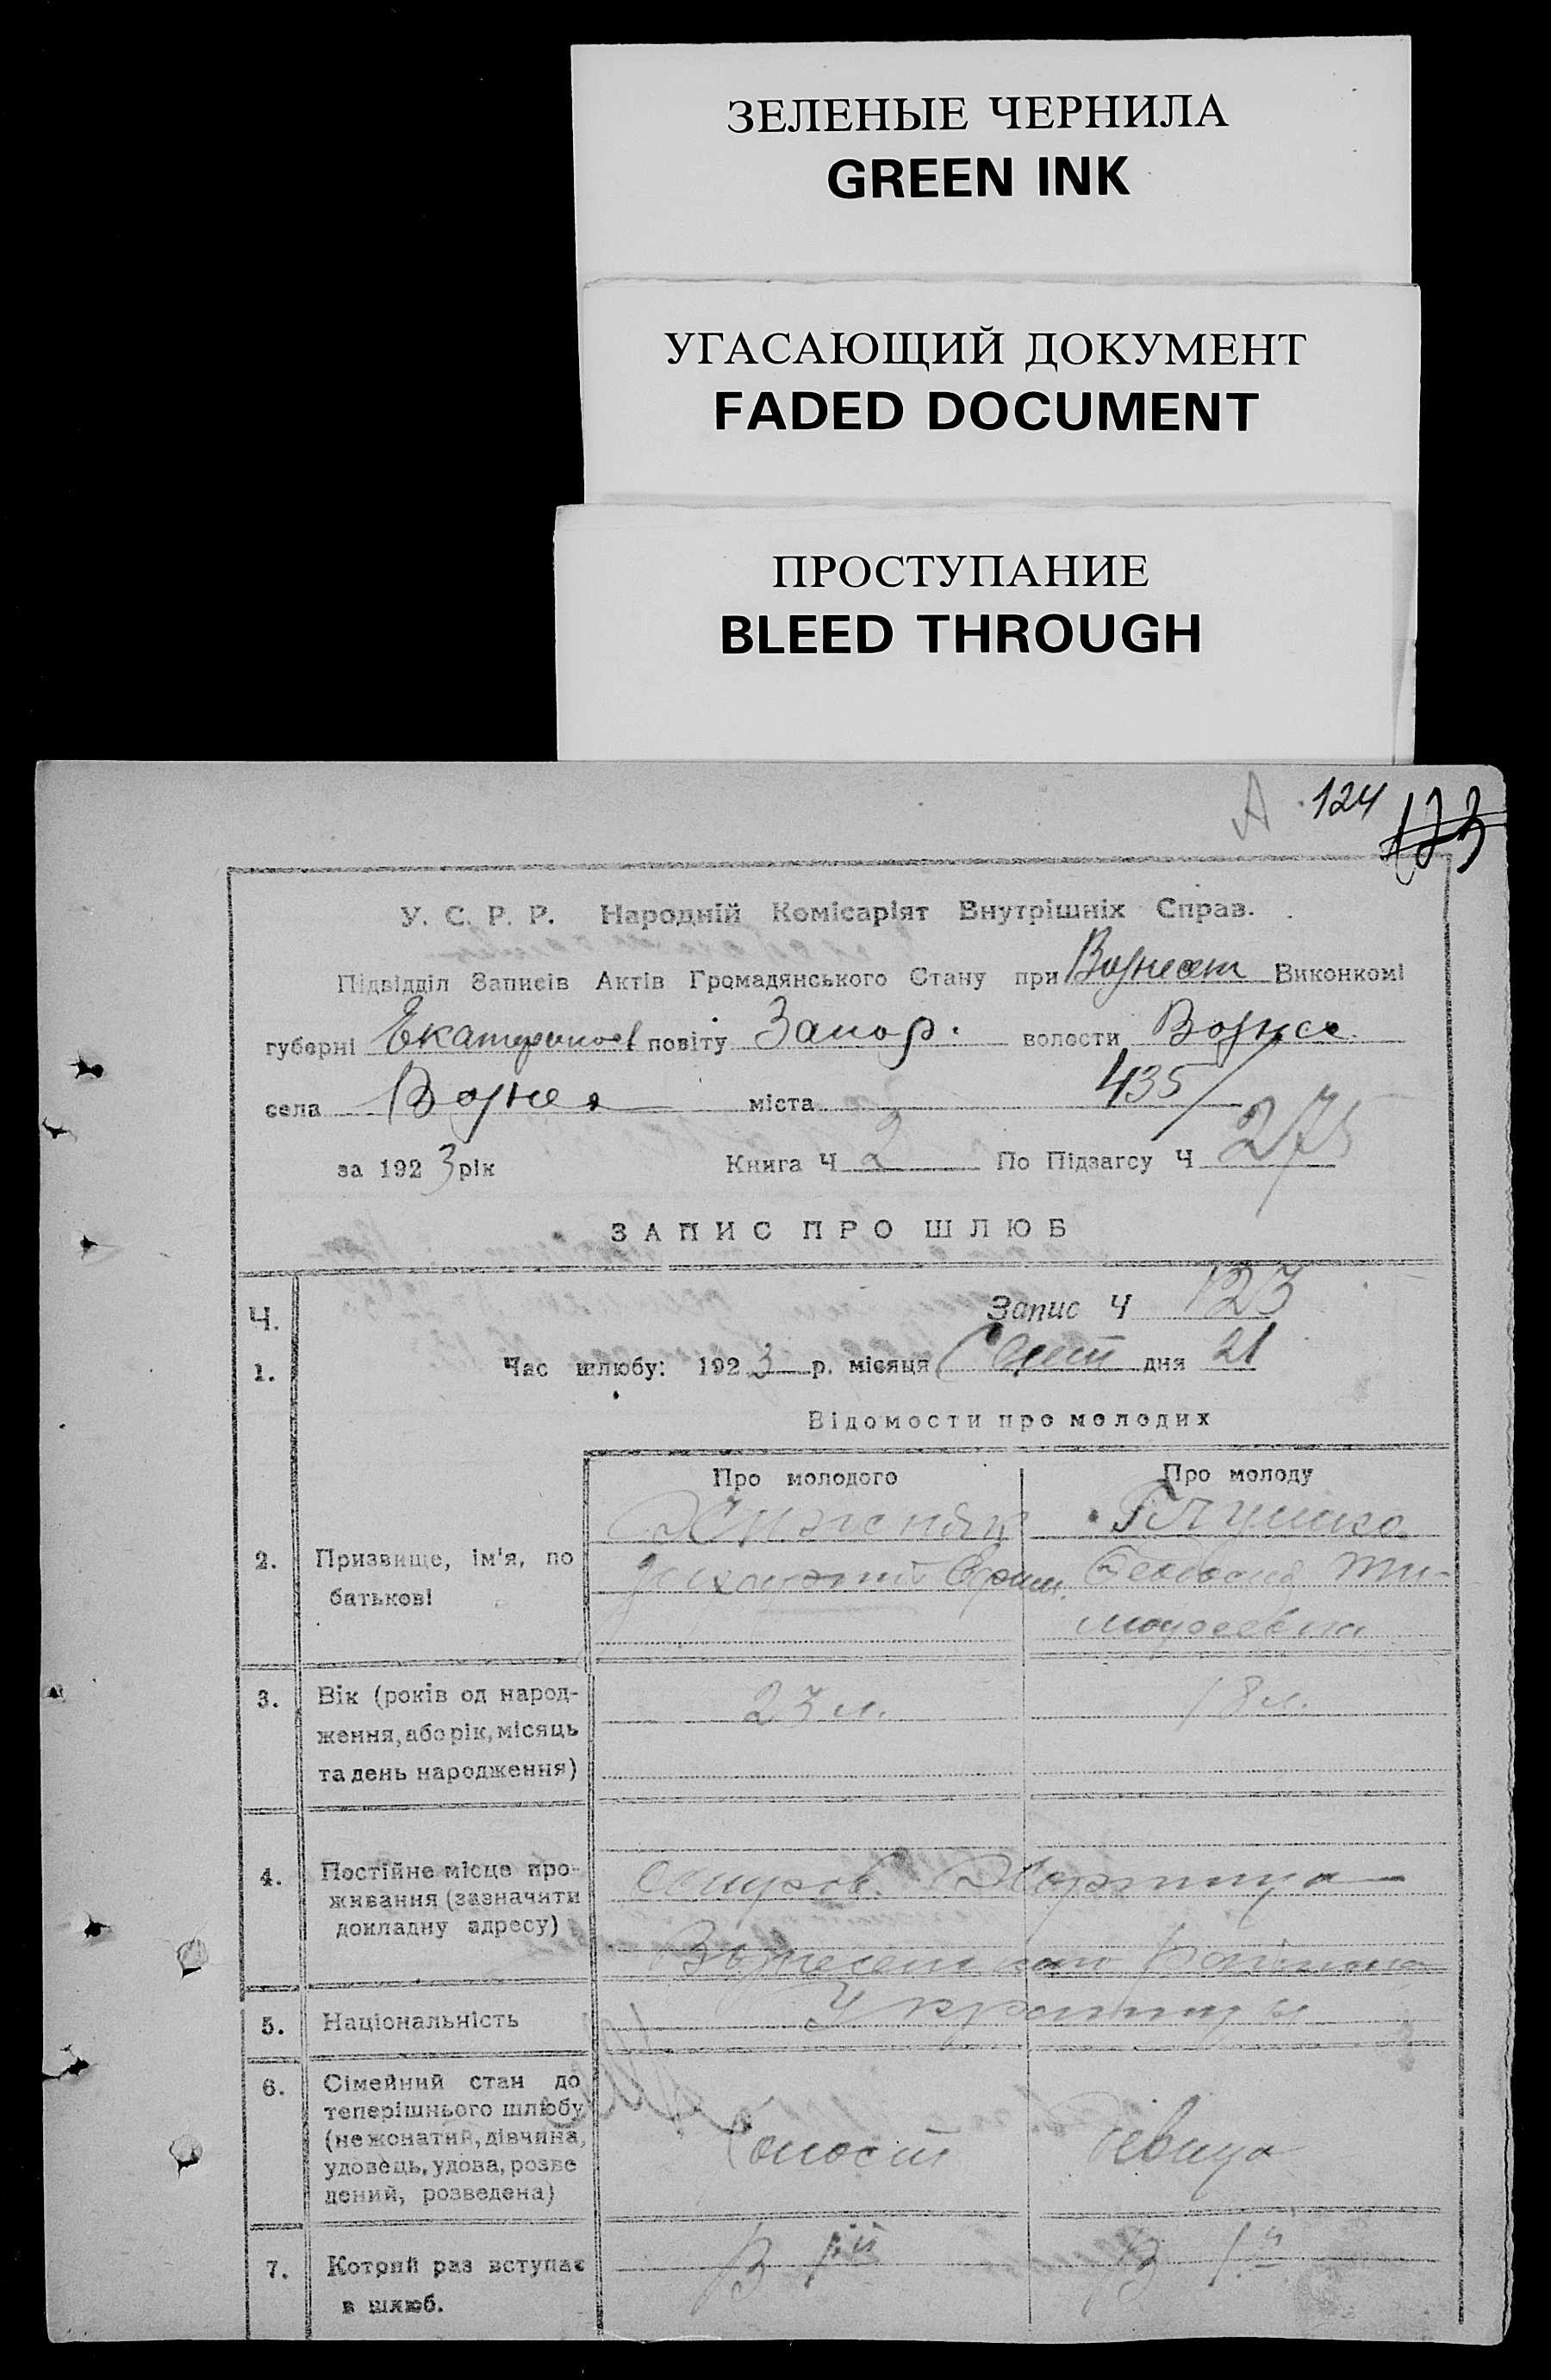 ЗЕЛЕНЫЕ ЧЕРНИЛА
GREEN INK
УГАСАЮЩИЙ ДОКУМЕНТ
FADED DOCUMENT
ПРОСТУПАНИЕ
BLEED THROUGH
А 124 123
У. С. Р. Р. Народній Комісаріят Внутрішніх Справ.
Підвідділ Записів Актів Громадянського Стану при Вознесен Виконкомі
губерні Екатеринос повіту Запор. волости Вознес.
села Вознес міста 435/
за 1923 рік Книга Ч 2 По Підзагсу Ч 275
ЗАПИС ПРО ШЛЮБ
Ч. Запис Ч 123
1. Час шлюбу: 1923 р. місяця Сент дня 21
Відомости про молодих
Про молодого Про молоду
Хижняк Глушко
2. Призвище, ім'я, по Ефим. Феодосия Ти-
батькові мофеевна
3. Вік (років од народ- 23 л. 18 л.
ження, або рік, місяць
та день народження)
4. Постійне місце про- Остров. Хортица
живання (зазначити
докладну адресу) Вознесенского района
5. Національність Украинцы
6. Сімейний стан до
теперішнього шлюбу
(нежонатий, дівчина, Холост Девица
удовець, удова, розве
дений, розведена)
7. Котрий раз вступає В 1й В 1й
в шлюб.